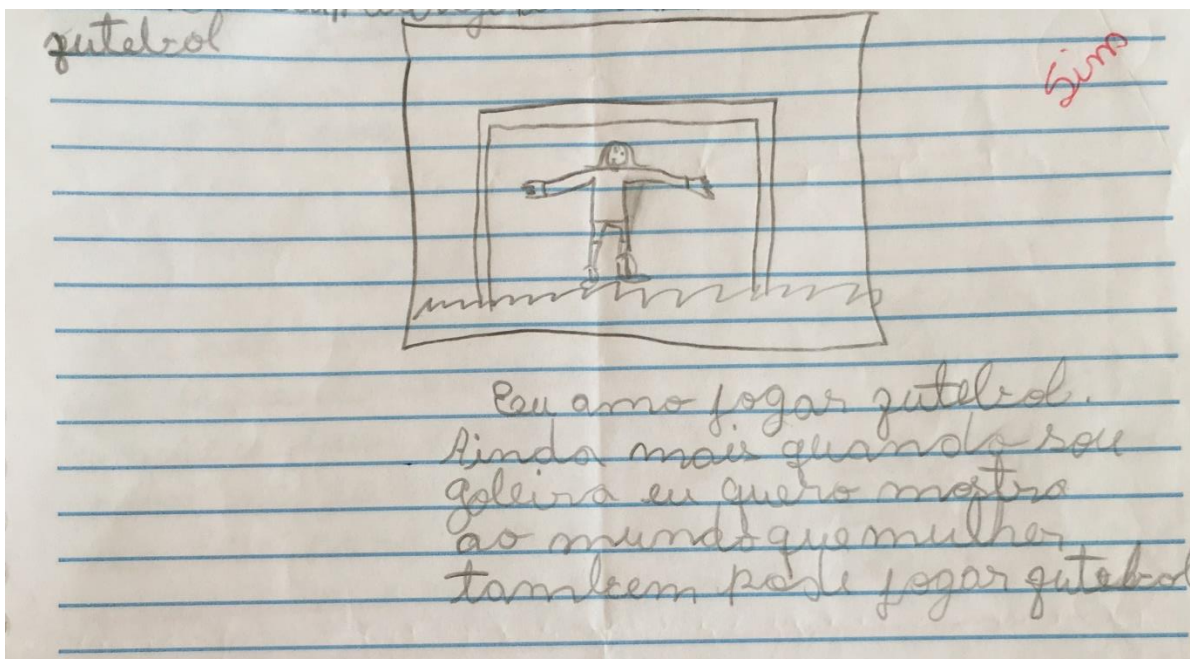 futebol
Sim
Eu amo jogar futebol.
Ainda mais quando sou
goleira eu quero mostra
ao mundo que mulher
tambem pode jogar futebol